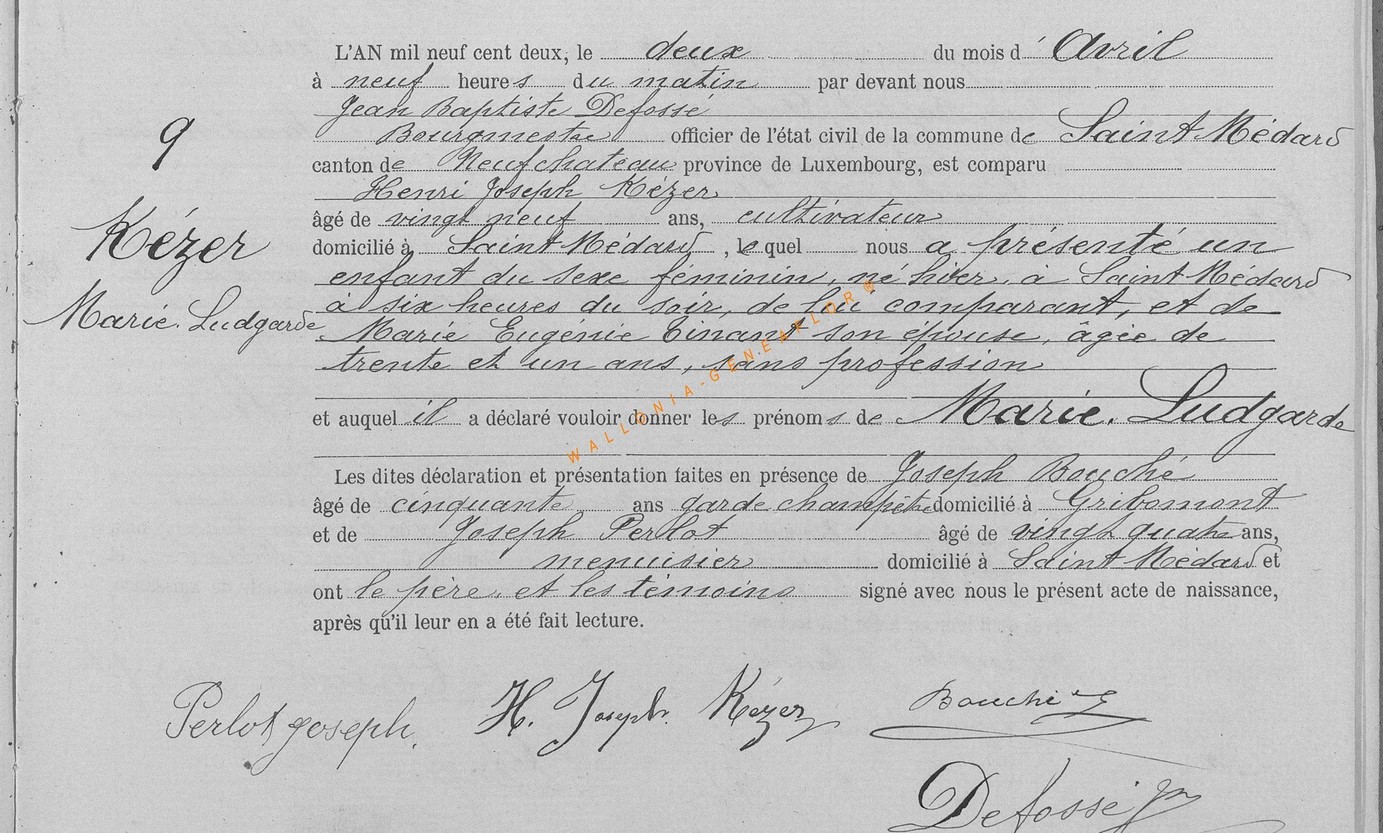 L'AN mil neuf cent deux, le deux du mois d' Avril
à neuf heures du matin par devant nous
Jean Baptiste Defossé
Bourgmestre officier de l'état civil de la commune de Saint Médard
canton de Neufchateau province de Luxembourg, est comparu
Henri Joseph Kézer
âgé de vingt neuf ans, cultivateur
domicilié à Saint Médard, lequel nous a présenté un
enfant du sexe féminin, né hier, à Saint Médard
à six heures du soir, de lui comparant, et de
Marie Eugénie Tinant son épouse, âgée de
trente et un ans, sans profession
et auquel il a déclaré vouloir donner les prénoms de Marie. Ludgarde
Les dites déclaration et présentation faites en présence de Joseph Bouché
âgé de cinquante ans garde champêtre domicilié à Gribomont
et de Joseph Perlot âgé de vingt quatre ans,
menuisier domicilié à Saint Médard et
ont le père, et les témoins signé avec nous le présent acte de naissance,
après qu'il leur en a été fait lecture.
9
Kézer
Marie. Ludgarde
Perlot joseph. H. Joseph Kézer Bouché
Defossé
WALLONIA-GENEAFLOR®